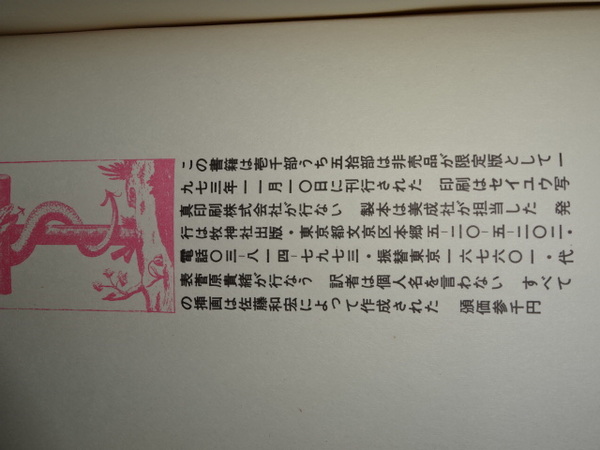 この書籍は壱千部うち五拾部は非売品が限定版として一
九七三年一一月一〇日に刊行された　印刷はセイユウ写
真印刷株式会社が行ない　製本は美成社が担当した　発
行は牧神社出版・東京都文京区本郷五-二〇-五-二〇二・
電話〇三-八一四-七九七三・振替東京一六七六〇一・代
表菅原貴緒が行なう　訳者は個人名を言わない　すべて
の挿画は佐藤和宏によって作成された　頒価参千円